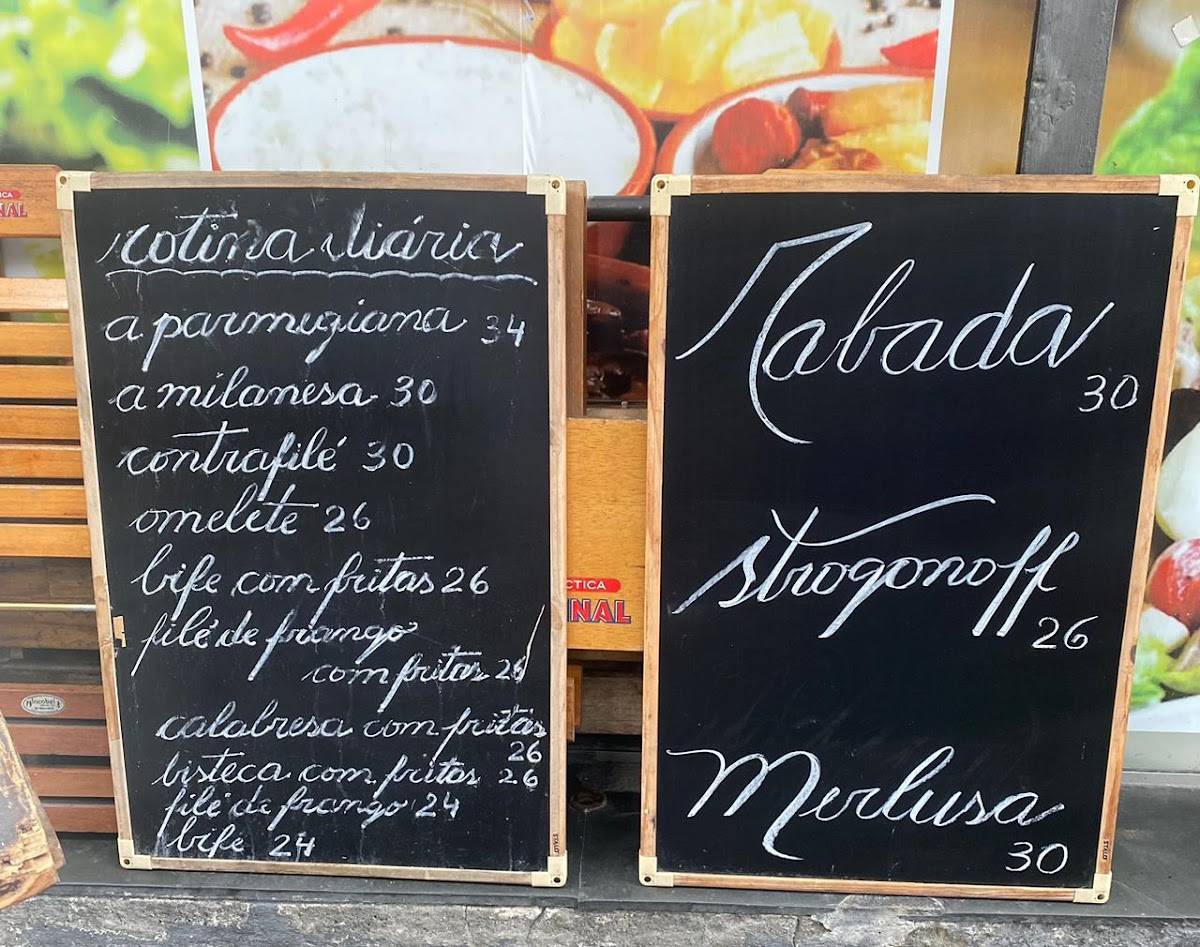 rotina diária
a parmegiana 34
a milanesa 30
contrafilé 30
omelete 26
bife com fritas 26
filé de frango
com fritas 26
calabresa com fritas
26
bisteca com fritas 26
filé de frango 24
bife 24
Rabada
30
Strogonoff
26
Merlusa
30
CTICA
INAL
ICA
NAL
STALO
STALO